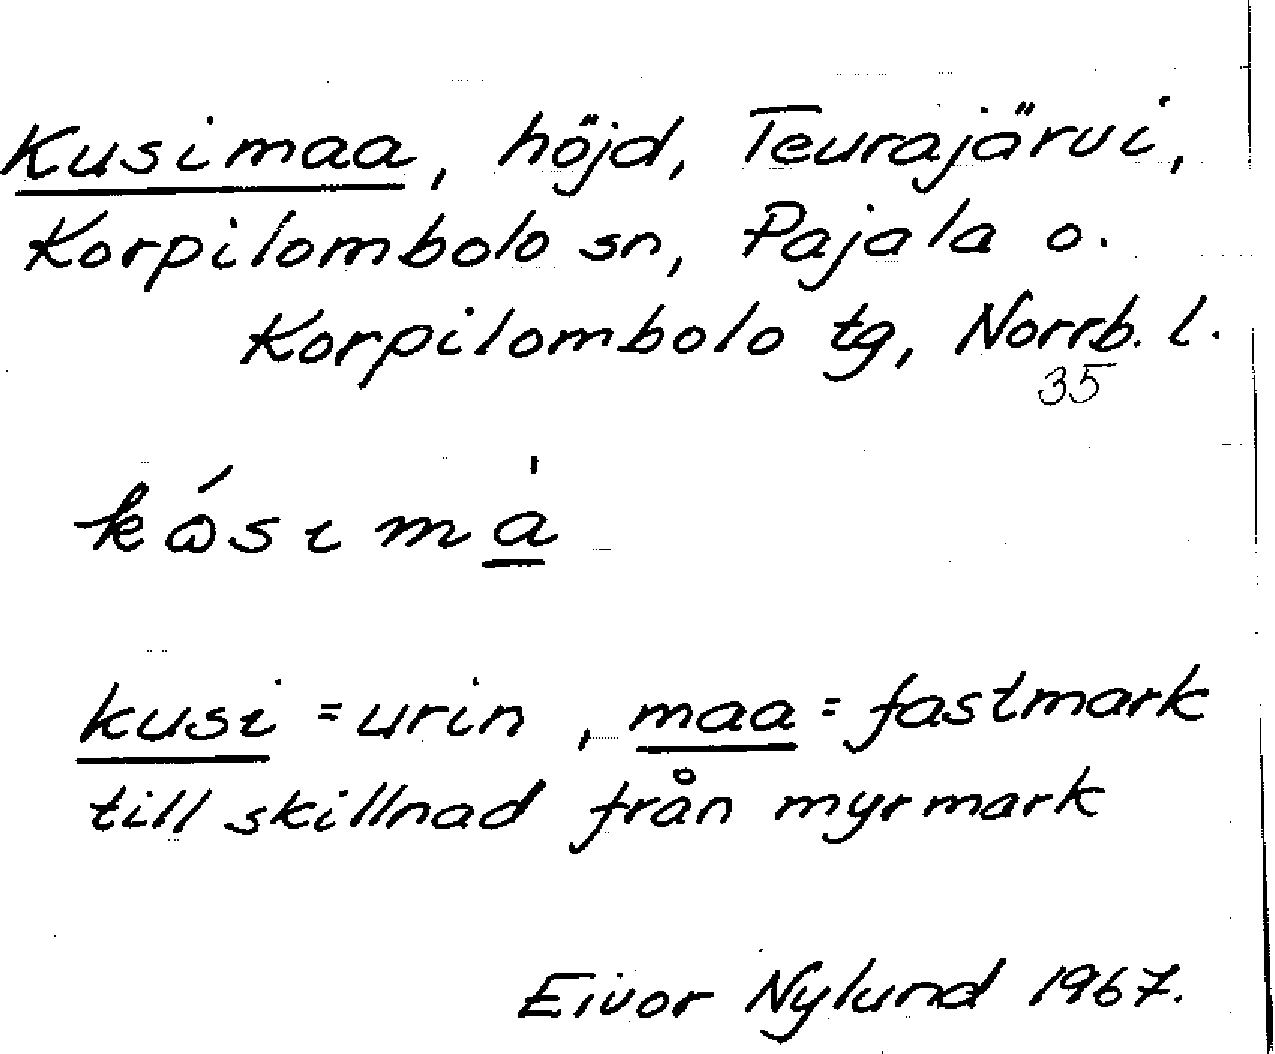 Kusimaa, höjd, Teurajärvi,
Korpilombolo sn, Pajala o.
Korpilombolo tg, Norrb. l.
35
kusi = urin, maa = fastmark
till skillnad från myrmark
Eivor Nylund 1967.